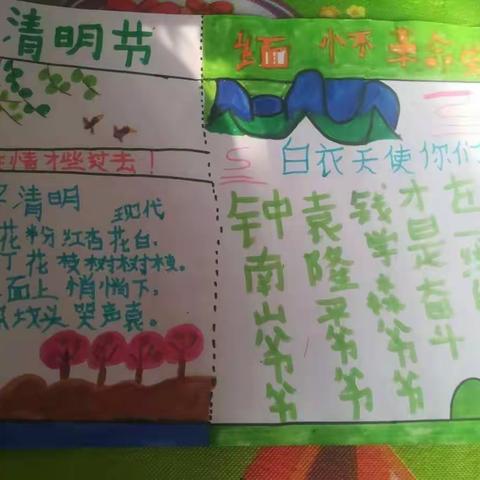 清明节
情才些过去！
清明
现代
花粉红杏花白,
丁花枝树树枝。
面上悄悄下,
坟头哭声哀。
缅怀革命
白衣天使你们
钟南山爷爷
袁隆平爷爷
钱学森爷爷
才是奋斗
在一线